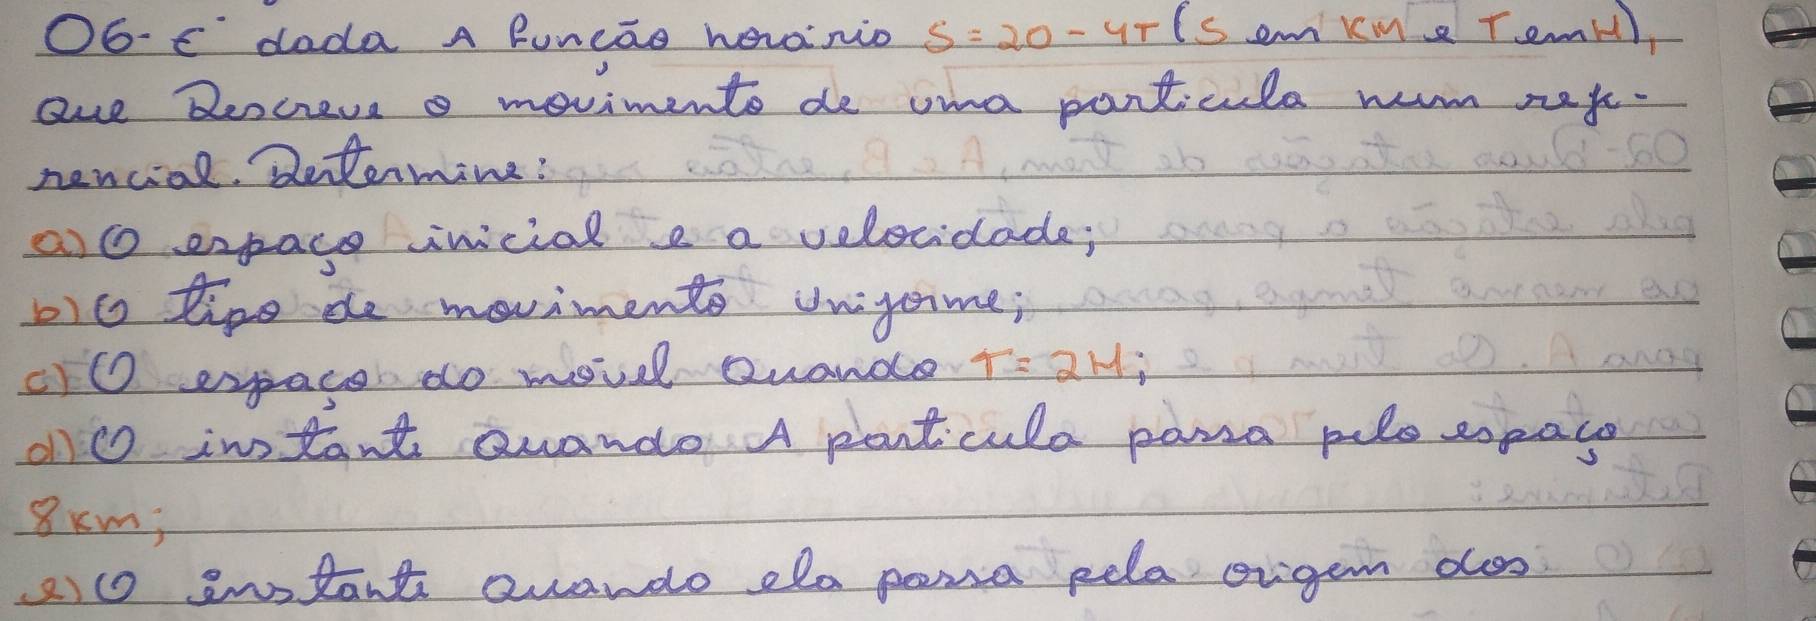 06- É dada A função horário S = 20 - 4T (S em KM e T em H),
Que Descreve o movimento de uma particula num refe-
rencial. Determine:
a) O espaço inicial e a velocidade;
b) O tipo de movimento Uniforme;
c) O espaço do móvel Quando T = 2H;
d) O instante Quando A particula passa pelo espaço
8 km;
e) O instante Quando ela passa pela origem dos